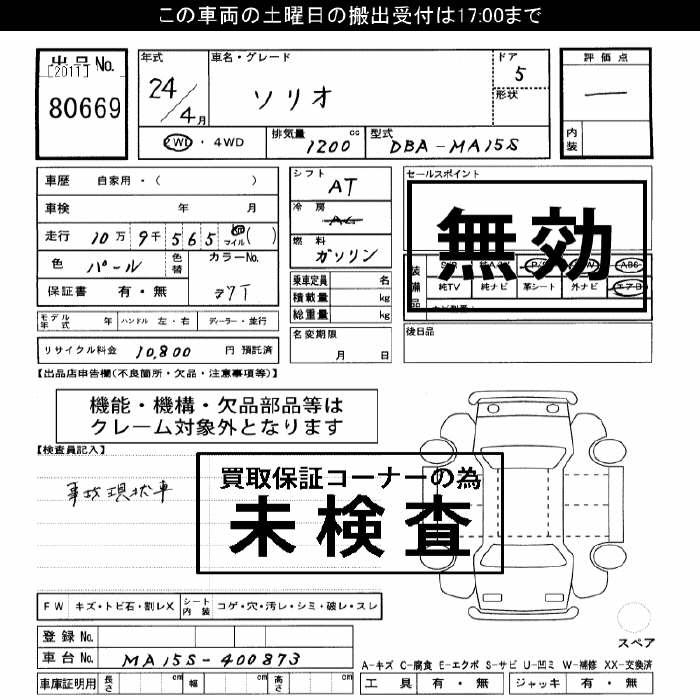 この車両の土曜日の搬出受付は17:00まで
出品No.
[2011]
80669
年式
24/4月
車名・グレード
ソリオ
ドア
5
形状
評価点
—
内装
2WD・4WD
排気量
1200 cc
型式
DBA-MA15S
車歴 自家用・( )
車検 年 月
走行 10万9千565 マイル( )
色 パール
色替
カラーNo.
ZYT
保証書 有・無
シフト
AT
冷房
AC
燃料
ガソリン
乗車定員 名
積載量 kg
総重量 kg
名変期限
月 日
セールスポイント
無効
装備品
P/S
P/W
ABS
純TV 純ナビ 革シート 外ナビ エアB
後日品
モデル年式 年 ハンドル 左・右 ディーラー・並行
リサイクル料金 10,800 円 預託済
【出品店申告欄(不良箇所・欠品・注意事項等)】
機能・機構・欠品部品等は
クレーム対象外となります
【検査員記入】
事故現状車
買取保証コーナーの為
未検査
FW キズ・トビ石・割レX
シート内装 コゲ・穴・汚レ・シミ・破レ・スレ
登録No.
車台No. MA15S-400873
車庫証明用 長さ cm 幅 cm 高さ cm
スペア
A-キズ C-腐食 E-エクボ S-サビ U-凹ミ W-補修 XX-交換済
工具 有・無 ジャッキ 有・無